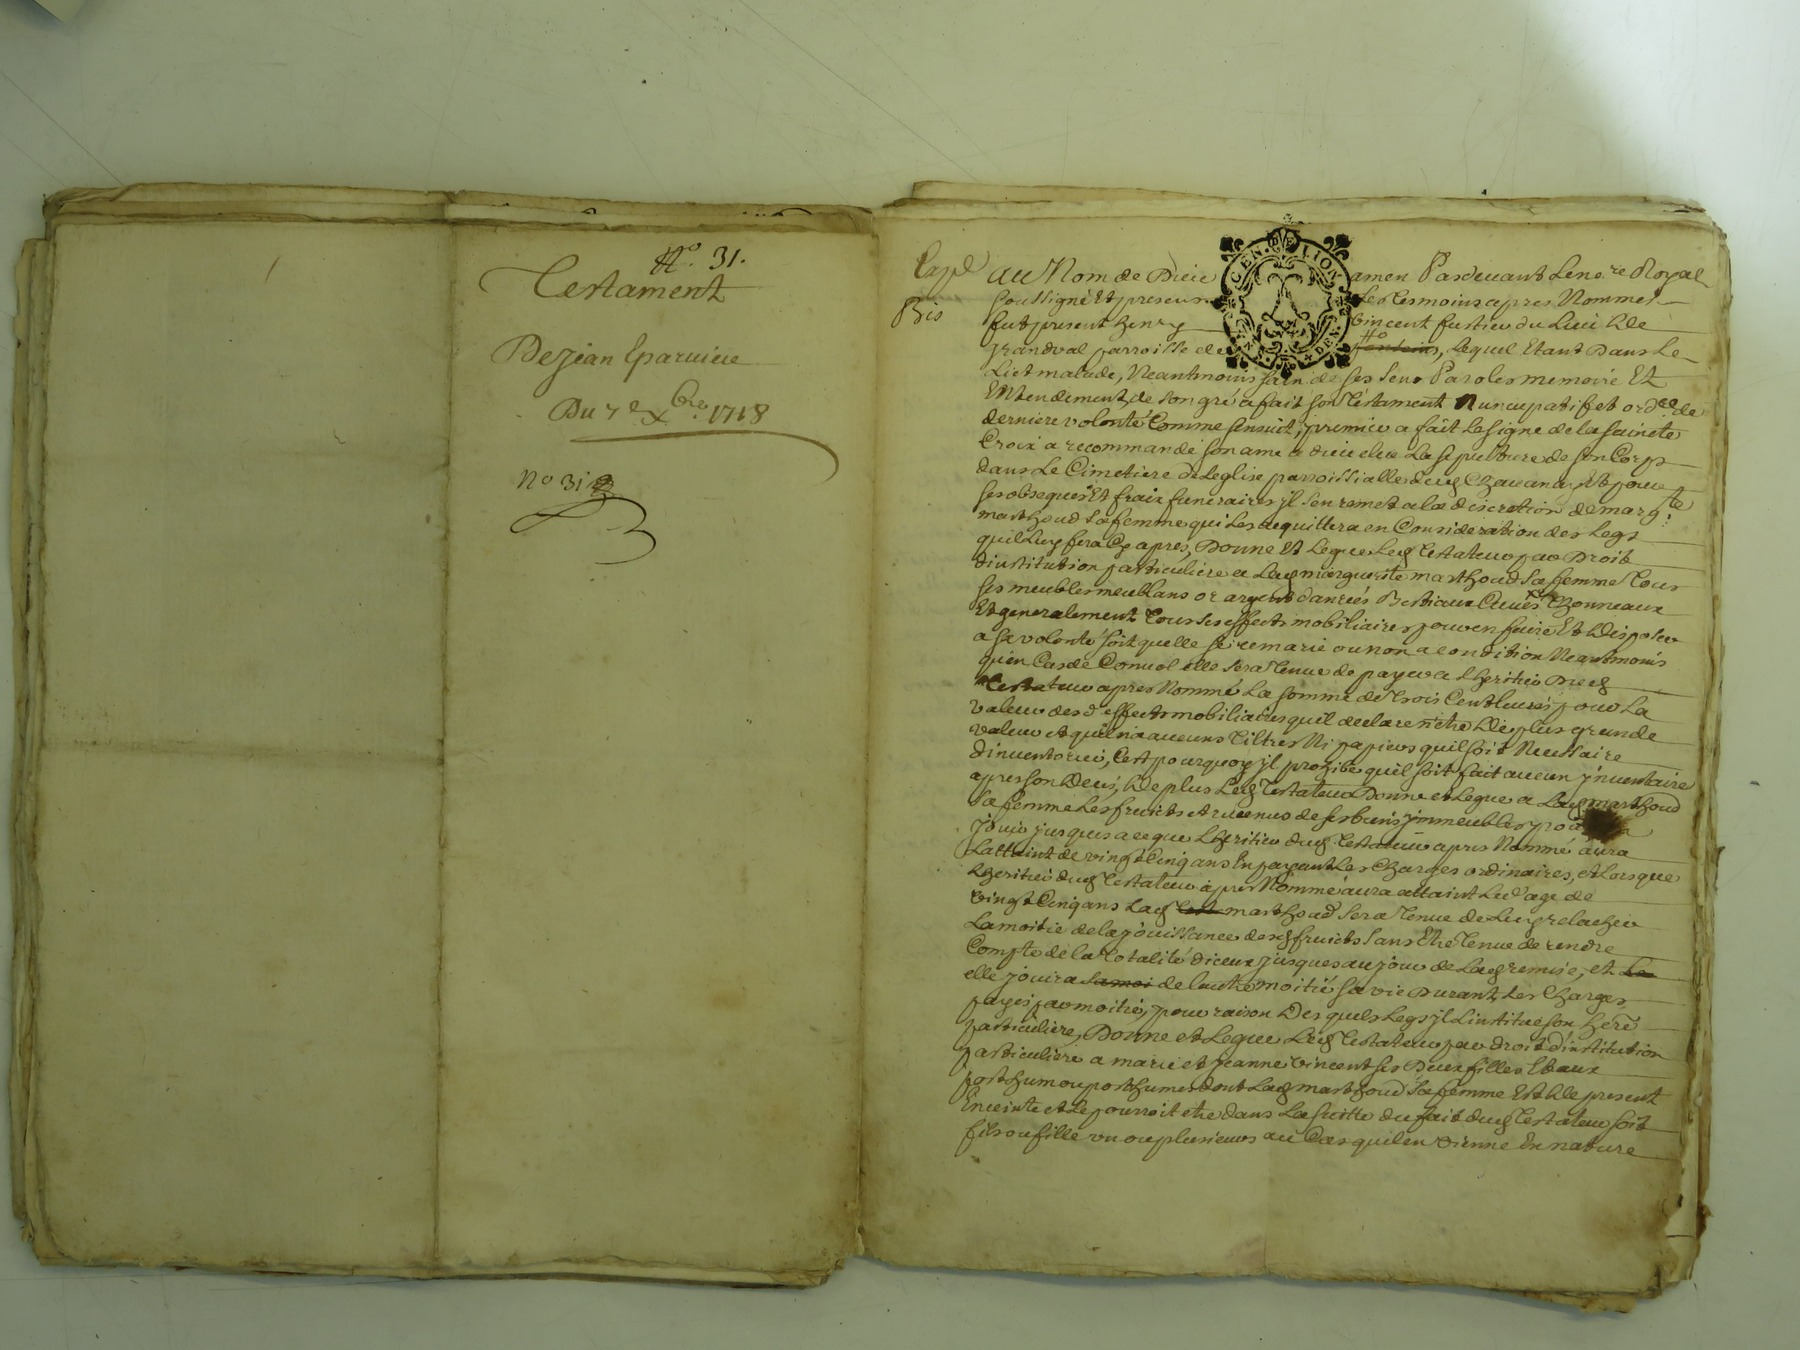 N° 31.
Testament
De Jean Eparvier
Du 7e Xbre 1718
N° 31
Expé
Bis
GEN. DE LION
Au Nom de Dieu amen Pardevant Le no.re Royal
soussigné Et presens Les tesmoins apres Nommés
fut present henry vincent fustier du Lieu De
grandval parroisse de lequel Etant Dans Le
Lict malade, Neantmoins sain de ses sens Paroles memoire Et
Entendement de son gré a fait son testament Nuncupatif et ord.ce de
derniere volonté Comme sensuit, premier a fait Le signe de la saincte
Croix a recommandé son ame a dieu eleu La sepulture de son Corps
dans Le Cimetiere De Leglise parroissialle dud Chavanay Et pour
ses obseques Et fraix funeraires jl sen remet a la discretion de marg.te
marthoud sa femme qui Les acquittera en Consideration des Legs
quil Luy fera Cy apres, Donne Et Legue Led testateur par Droit
dinstitution particuliere a Lad marguerite marthoud sa femme tous
ses meubles meublans or argent danrées Bestiaux Cuves Thonneaux
Et generalement tous ses effects mobiliaires pour en faire Et Disposer
a sa volonté soit quelle se remarie ou non a condition Neantmoins
quen Cas de Convol elle sera tenue de payer a Lheritier Dud
testateur apres Nommé La somme de trois Cent livres pour La
valeur desd effects mobiliaires quil declare nêtre De plus grande
valeur et quil na aucuns tiltres Ni papiers quil soit Necessaire
dinventorier, Cest pourquoy jl prohibe quil soit fait aucun jnventaire
apres son Deces, De plus Led testateur Donne et Legue a Lad marthoud
sa femme Les fruicts et revenus de ses biens jmmeubles pour
jouir jusques a ce que Lheritier dud testateur apres Nommé aura
Lattaint de vingt Cinq ans En payant Les Charges ordinaires, et Lorsque
Lheritier dud testateur apres Nommé aura attaint Led age de
vingt Cinq ans Lad test marthoud sera tenue de Luy relacher
La moitie de la jouissance desd fruicts sans Etre tenue de rendre
Compte de la totalité diceux jusques au jour de Lad remise, et La
elle jouira sa moi de lautre moitié sa vie Durant, Les Charges
payés par moitié, pour raison Desquels Legs jl Linstitue son here
particuliere, Donne et Legue Led testateur par droit dinstitution
particuliere a marie et jeanne vincent ses Deux filles Et aux
posthum ou posthumes dont Lad marthoud sa femme Est De present
Enceinte et Le pourroit etre dans La suitte du fait dud testateur soit
fils ou fille un ou plusieurs au Cas quil en vienne En nature